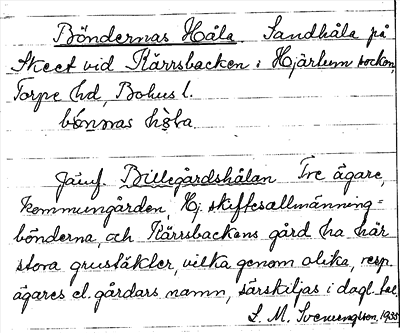 Böndernas Håla Sandhåla på
Skeet vid Kärrsbacken i Hjärtum socken,
Torpe hd, Bohus l.
bönnas håla
Jämf. Billegårdshålan Tre ägare,
kommungården, Hj. skiftesallmänning=
bönderna och Kärrsbackens gård ha här
stora grustäkter, vilka genom olika, resp.
ägares el. gårdars namn, särskiljas i dagl. tal.
L. M. Svenungsson, 1935